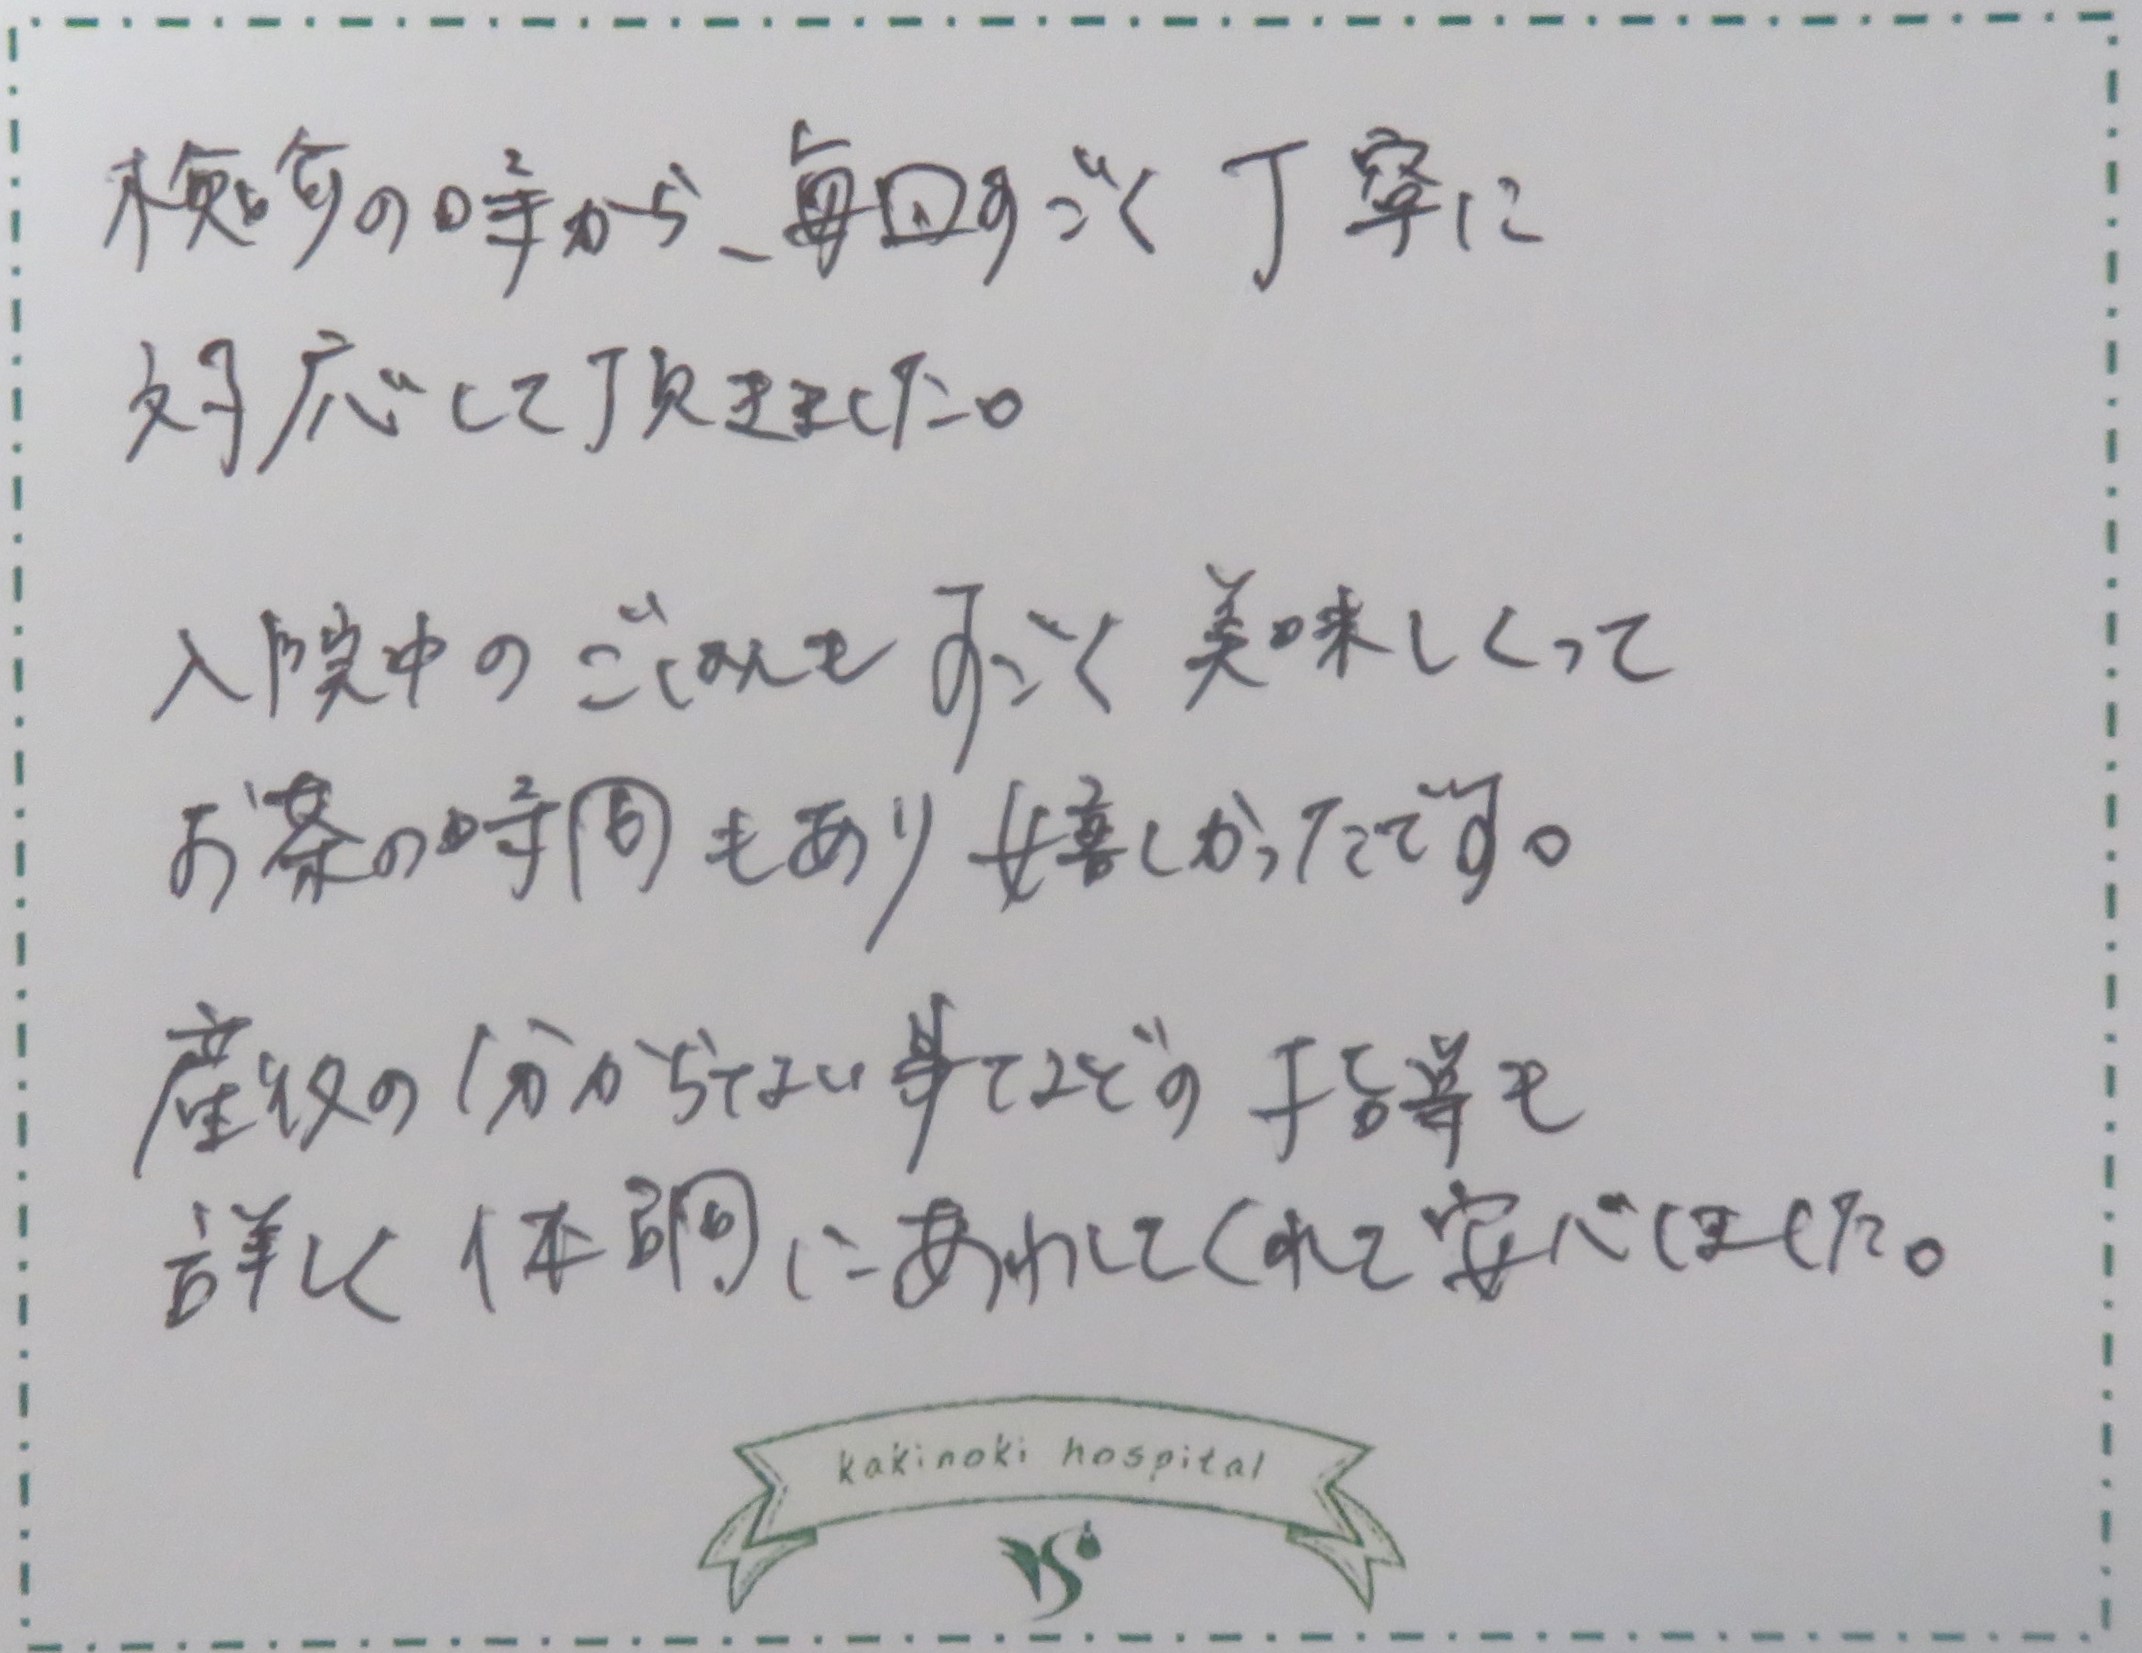 検診の時から、毎回すごく丁寧に
対応して頂きました。
入院中のごはんもすごく美味しくって
お茶の時間もあり嬉しかったです。
産後の分からない事などの指導も
詳しく体調にあわしてくれて安心しました。
kakinoki hospital